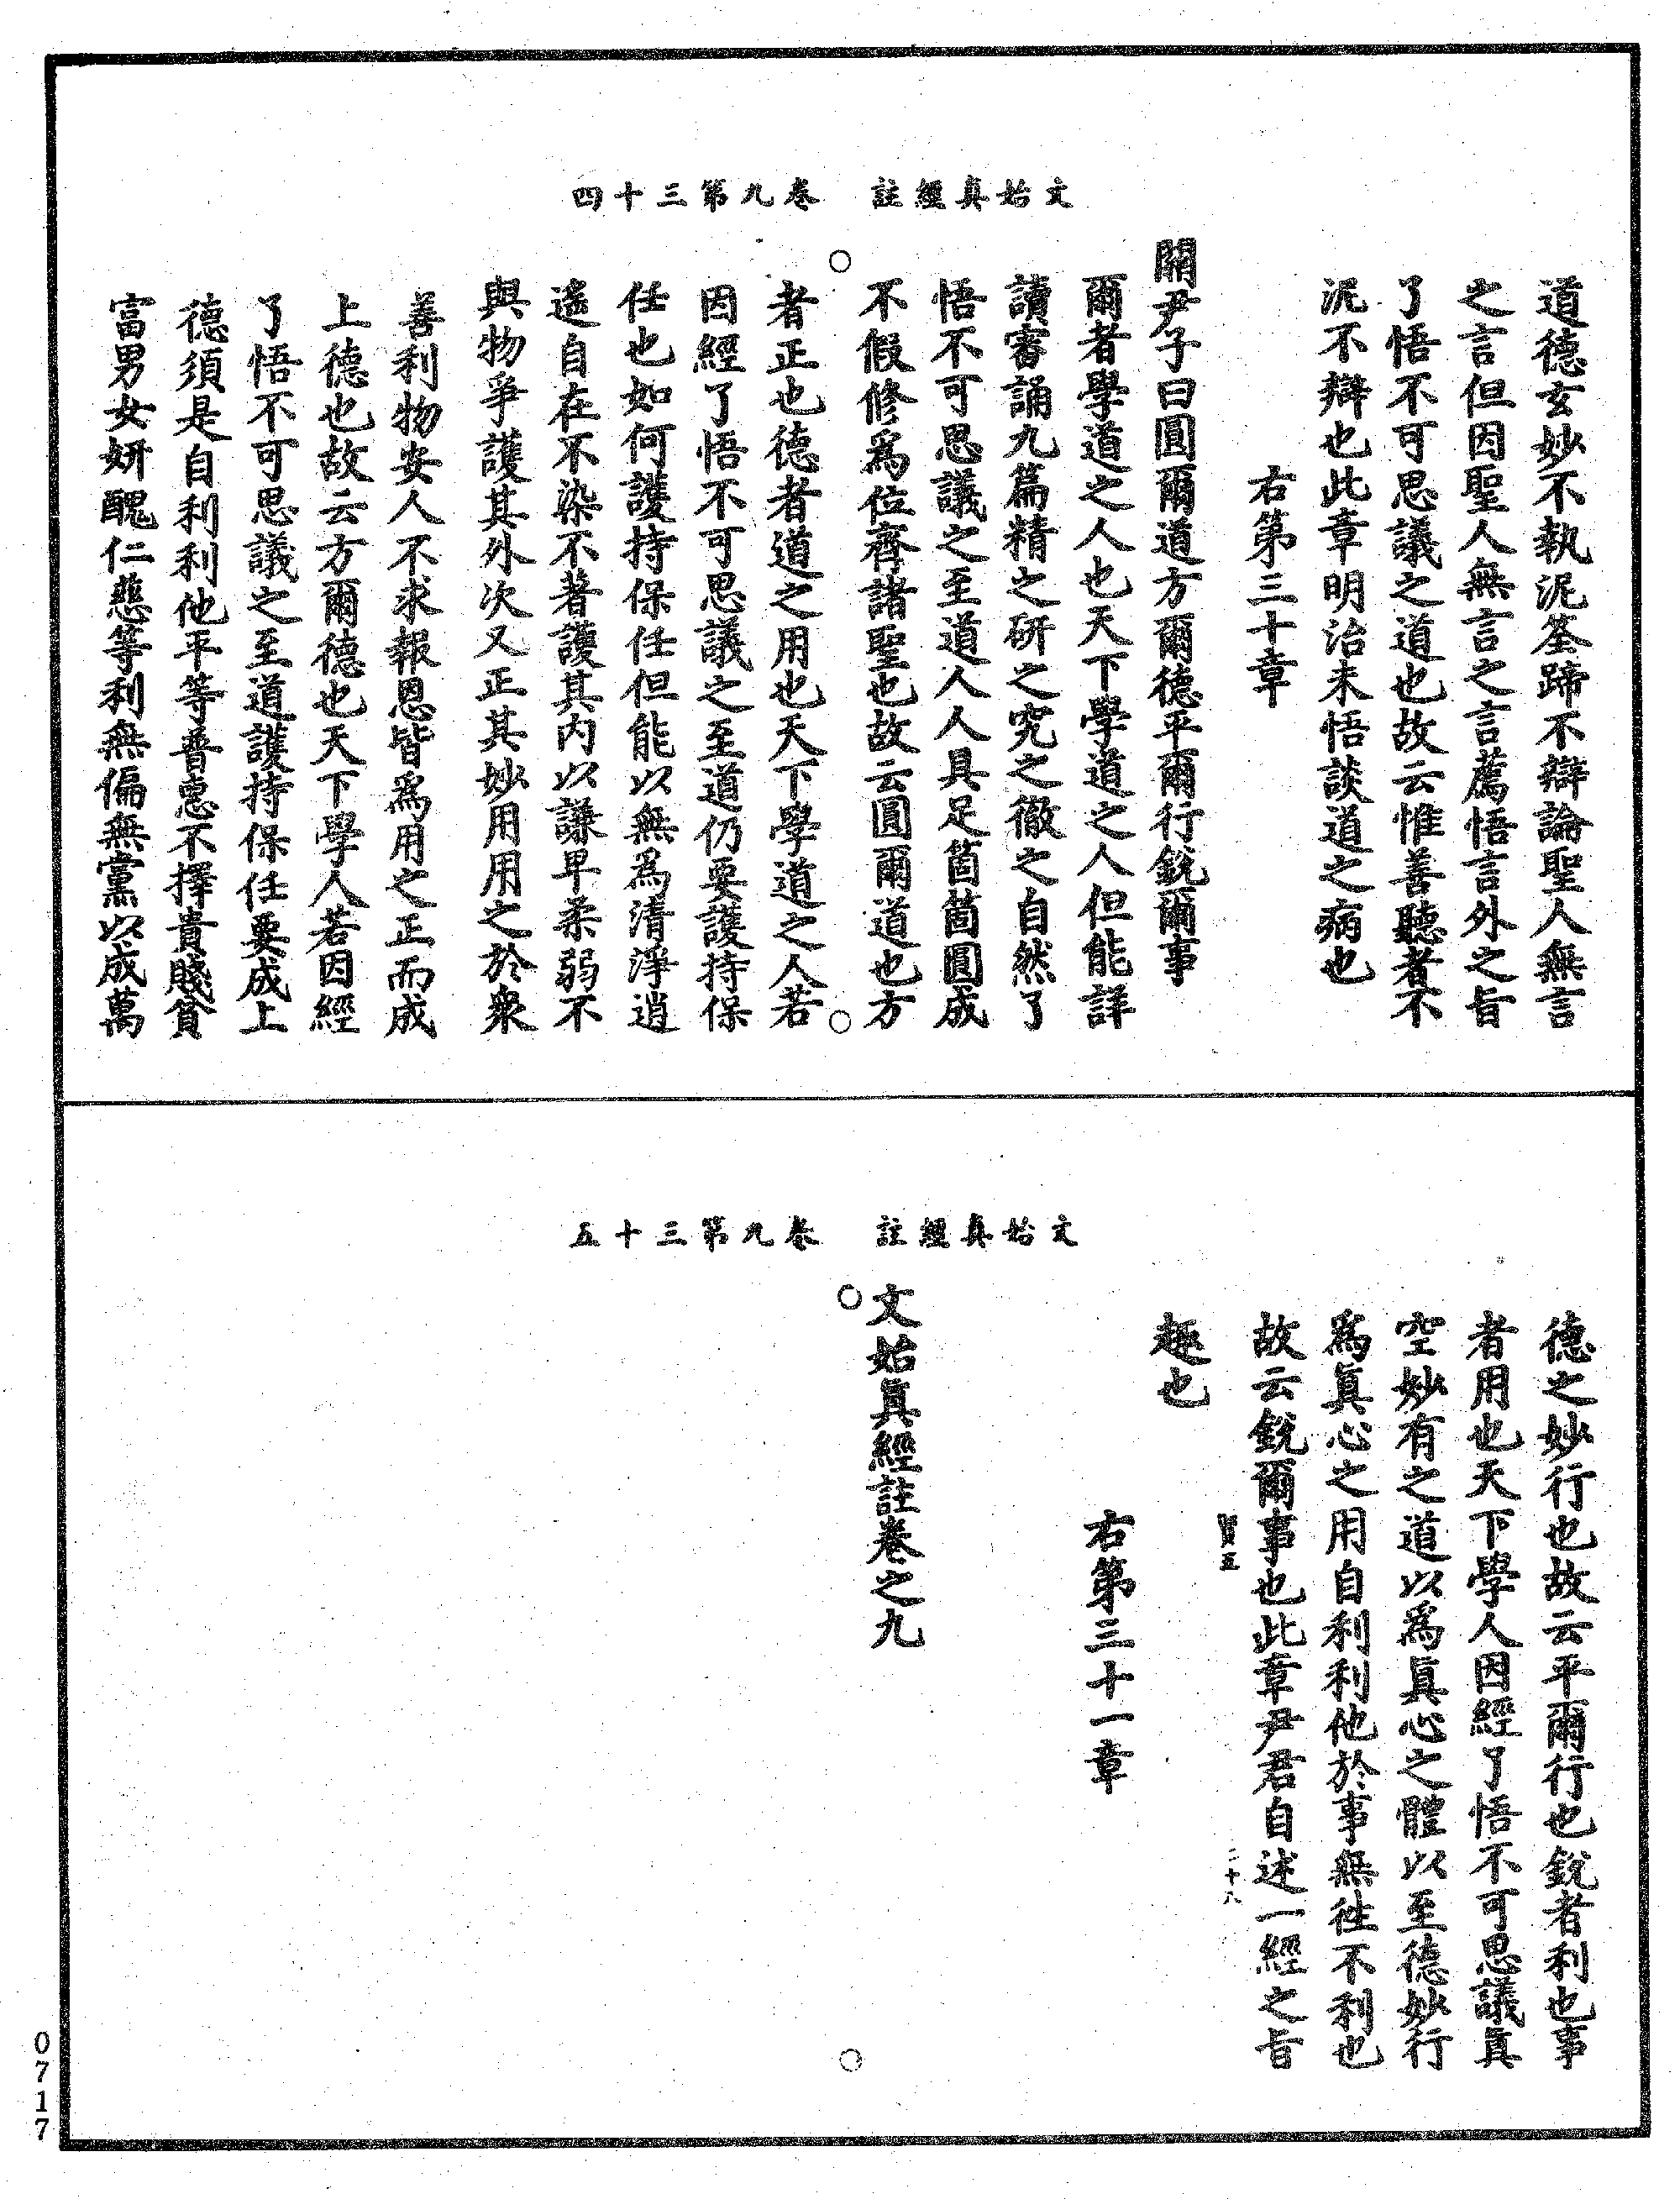 文始真經註　卷九第三十四
道德玄妙不執泥筌蹄不辯論聖人無言
之言但因聖人無言之言薦悟言外之旨
了悟不可思議之道也故云惟善聽者不
泥不辯也此章明治未悟談道之病也
右第三十章
關尹子曰圓爾道方爾德平爾行銳爾事
爾者學道之人也天下學道之人但能詳
讀審誦九篇精之研之究之徹之自然了
悟不可思議之至道人人具足箇箇圓成
不假修為位齊諸聖也故云圓爾道也方
者正也德者道之用也天下學道之人若
因經了悟不可思議之至道仍要護持保
任也如何護持保任但能以無為清淨逍
遙自在不染不著護其內以謙卑柔弱不
與物爭護其外次又正其妙用用之於衆
善利物安人不求報恩皆為用之正而成
上德也故云方爾德也天下學人若因經
了悟不可思議之至道護持保任要成上
德須是自利利他平等普惠不擇貴賤貧
富男女妍醜仁慈等利無偏無黨以成萬
文始真經註　卷九第三十五
德之妙行也故云平爾行也銳者利也事
者用也天下學人因經了悟不可思議真
空妙有之道以為真心之體以至德妙行
為真心之用自利利他於事無往不利也
故云銳爾事也此章尹君自述一經之旨
二十八
趣也
右第三十一章
文始真經註卷之九
0717